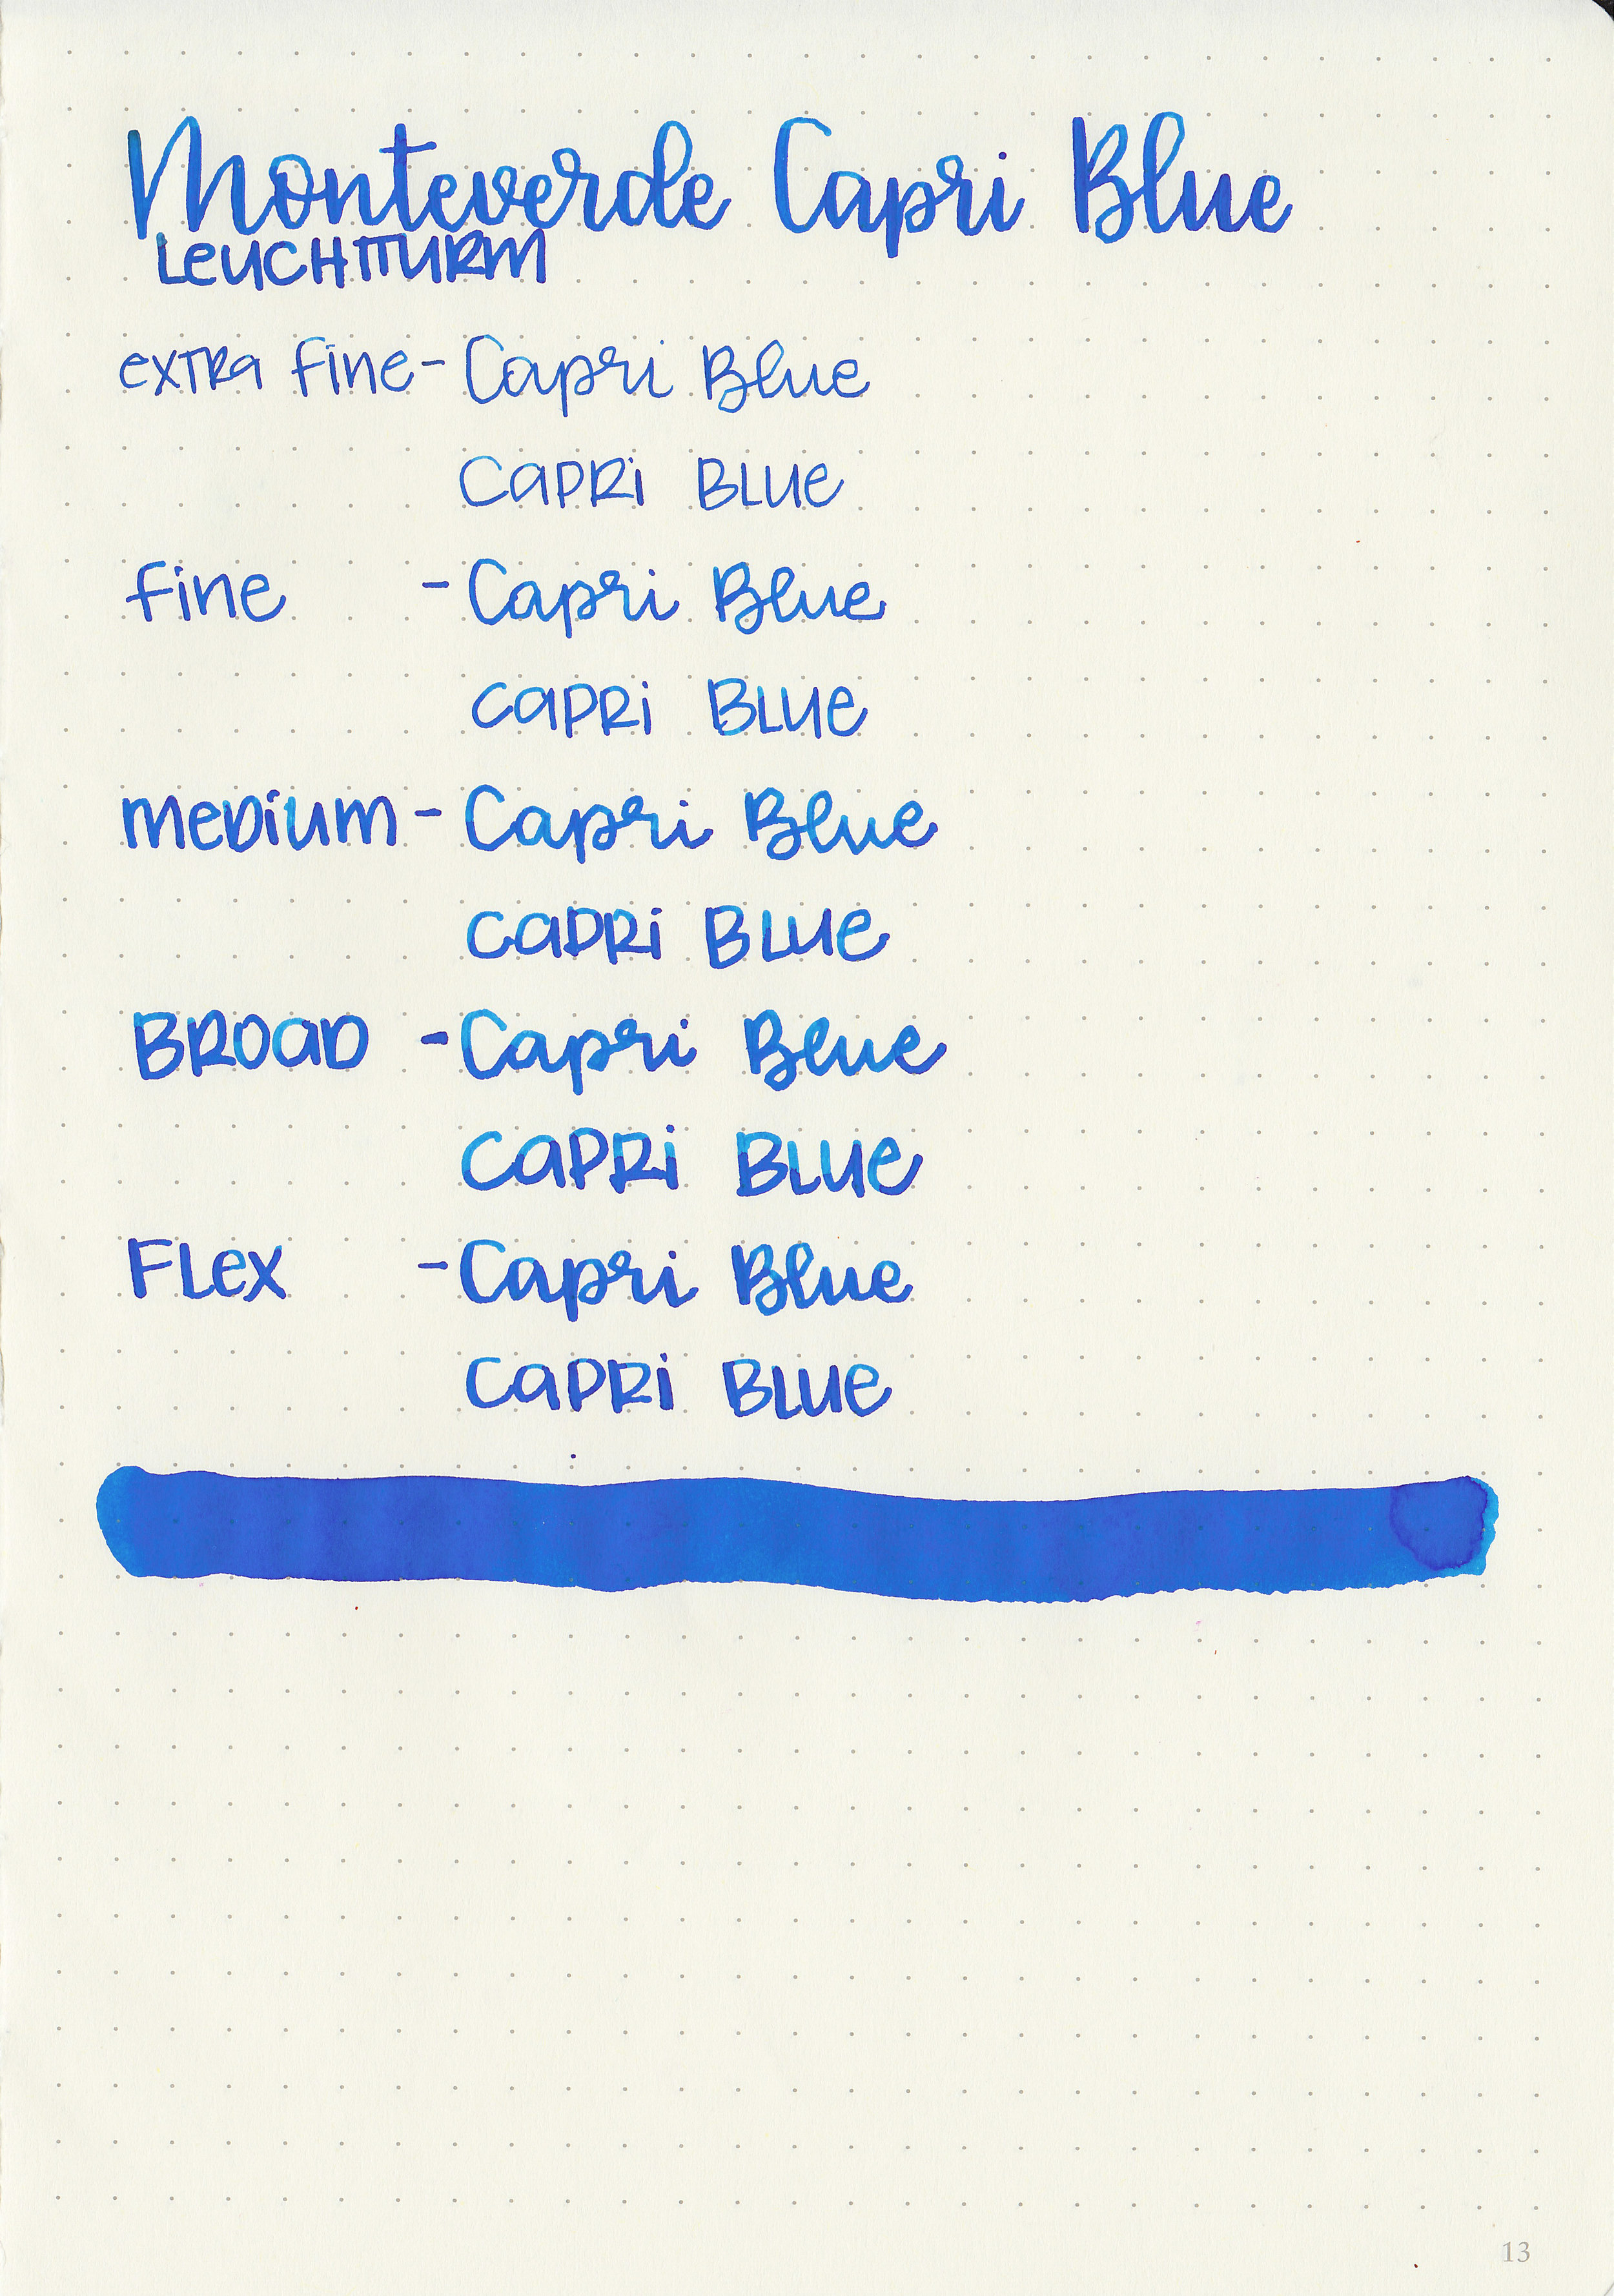 Monteverde Capri Blue
LEUCHTTURM
extra fine - Capri Blue
CAPRi BLUe
fine - Capri Blue
CAPRi BLUe
meDium - Capri Blue
CAPRi BLUe
BROAD - Capri Blue
CAPRi BLUe
FLex - Capri Blue
CAPRi BLUe
13